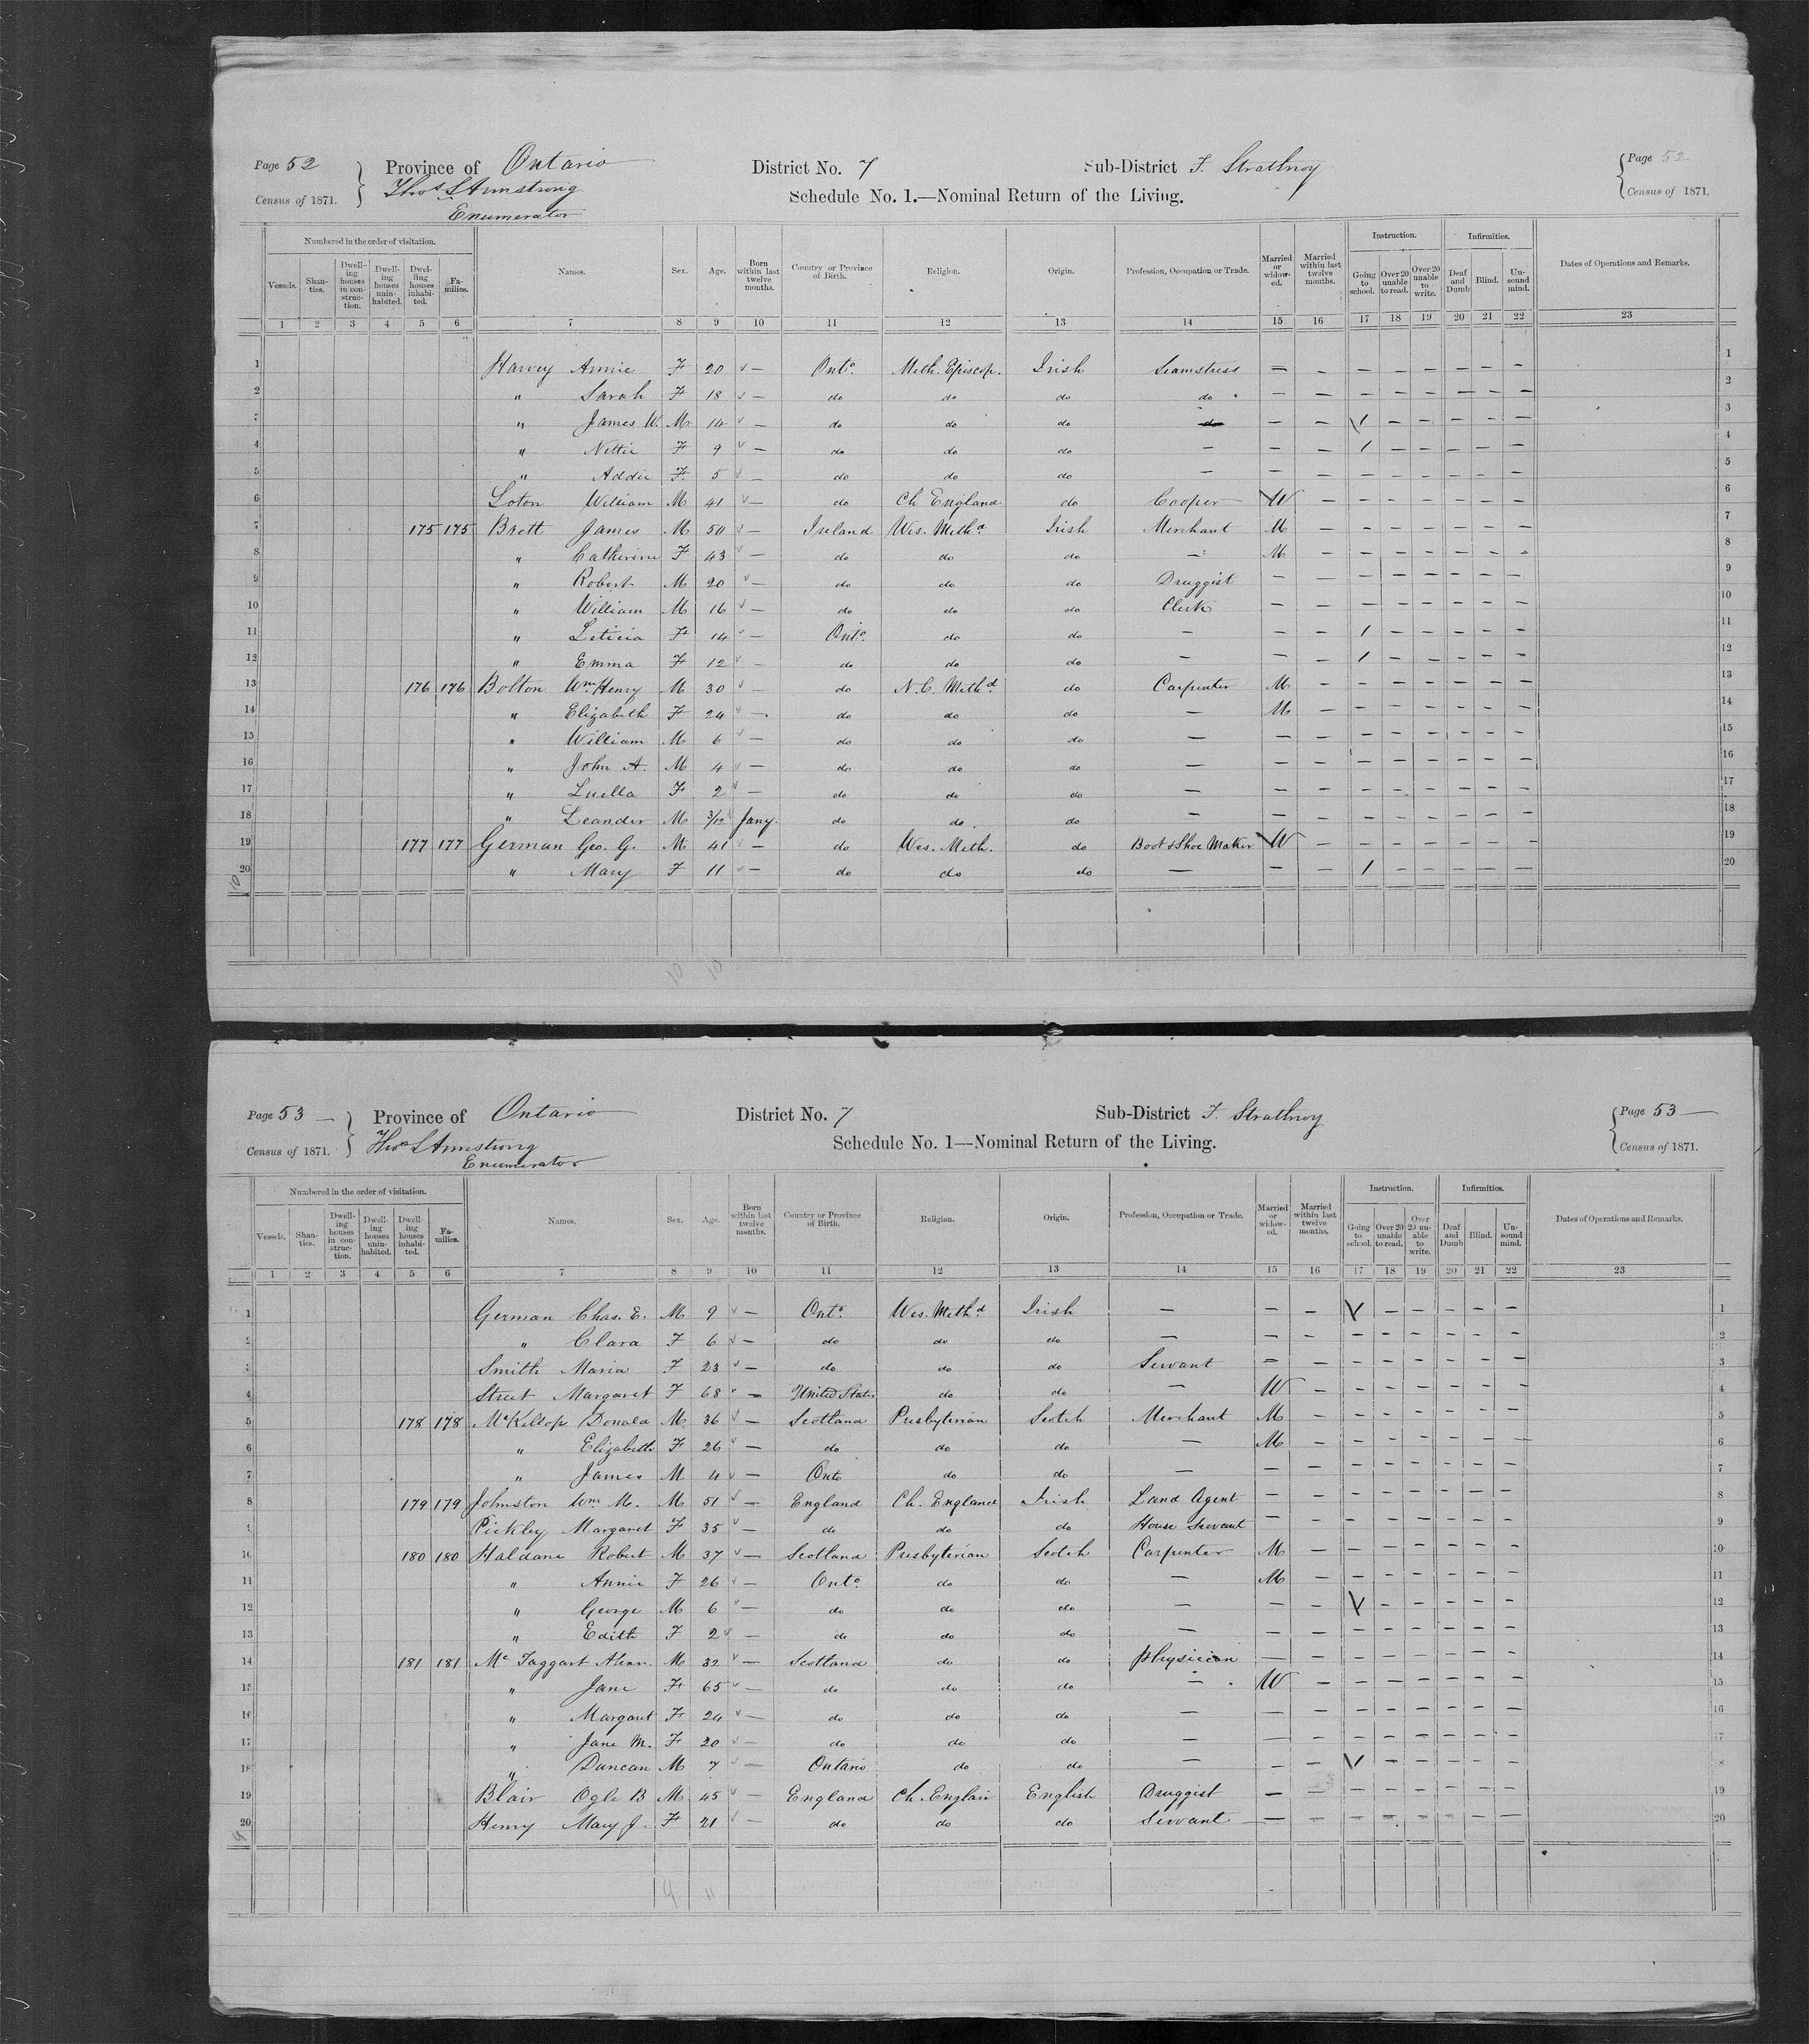 Page 52 Province of Ontario District No. 7 Sub-District F. Strathroy Page 52
Census of 1871. Thos. S Armstrong Schedule No. 1.—Nominal Return of the Living. Census of 1871.
Enumerator
Numbered in the order of visitation. Instruction. Infirmities.
Vessels. Shanties. Dwelling houses in construction. Dwelling houses uninhabited. Dwelling houses inhabited. Families. Names. Sex. Age. Born within last twelve months. Country or Province of Birth. Religion. Origin. Profession, Occupation or Trade. Married or widowed. Married within last twelve months. Going to school. Over 20 unable to read. Over 20 unable to write. Deaf and Dumb Blind. Unsound mind. Dates of Operations and Remarks.
1 2 3 4 5 6 7 8 9 10 11 12 13 14 15 16 17 18 19 20 21 22 23
1 Harvey Annie F 20 — Onto. Meth. Episcop. Irish Seamstress — — — — — — — — 1
2 " Sarah F 18 — do do do do — — — — — — — — 2
3 " James W. M 14 — do do do do — — 1 — — — — — 3
4 " Nettie F 9 — do do do — — — 1 — — — — — 4
5 " Addie F 5 do do do — — — — — — — — — 5
6 Loton William M 41 — do Ch England do Cooper W — — — — — — — 6
7 175 175 Brett James M 50 — Ireland Wes. Methd. Irish Merchant M — — — — — — — 7
8 " Catherine F 43 — do do do — M — — — — — — — 8
9 " Robert M 20 — do do do Druggist — — — — — — — — 9
10 " William M 16 — do do do Clerk — — — — — — — — 10
11 " Leticia F 14 — Onto. do do — — — 1 — — — — — 11
12 " Emma F 12 — do do do — — — 1 — — — — — 12
13 176 176 Bolton Wm Henry M 30 — do N.C. Methd. do Carpenter M — — — — — — — 13
14 " Elizabeth F 24 — do do do — M — — — — — — — 14
15 " William M 6 — do do do — — — — — — — — — 15
16 " John A. M 4 — do do do — — — — — — — — — 16
17 " Luella F 2 — do do do — — — — — — — — — 17
18 " Leander M 3/12 Jany. do do do — — — — — — — — — 18
19 177 177 German Geo. G. M 41 — do Wes. Meth. do Boot & Shoe Maker W — — — — — — — 19
20 " Mary F 11 — do do do — — — 1 — — — — — 20
10 10
Page 53 — Province of Ontario District No. 7 Sub-District F. Strathroy Page 53 —
Census of 1871. Thos S Armstrong Schedule No. 1—Nominal Return of the Living. Census of 1871.
Enumerator
Numbered in the order of visitation. Instruction. Infirmities.
Vessels. Shanties. Dwelling houses in construction. Dwelling houses uninhabited. Dwelling houses inhabited. Families. Names. Sex. Age. Born within last twelve months. Country or Province of Birth. Religion. Origin. Profession, Occupation or Trade. Married or widowed. Married within last twelve months. Going to school. Over 20 unable to read. Over 20 unable to write. Deaf and Dumb Blind. Unsound mind. Dates of Operations and Remarks.
1 2 3 4 5 6 7 8 9 10 11 12 13 14 15 16 17 18 19 20 21 22 23
1 German Chas. E. M 9 — Onto. Wes. Methd. Irish — — — V — — — — — 1
2 " Clara F 6 — do do do — — — — — — — — — 2
3 Smith Maria F 23 — do do do Servant — — — — — — — — 3
4 Street Margaret F 68 — United States do do — W — — — — — — — 4
5 178 178 McKillop Donald M 36 — Scotland Presbyterian Scotch Merchant M — — — — — — — 5
6 " Elizabeth F 26 — do do do — M — — — — — — — 6
7 " James M 4 — Onto do do — — — — — — — — — 7
8 179 179 Johnston Wm M. M 51 — England Ch. England Irish Land Agent — — — — — — — — 8
9 Pickley Margaret F 35 — do do do House Servant — — — — — — — — 9
10 180 180 Haldane Robert M 37 — Scotland Presbyterian Scotch Carpenter M — — — — — — — 10
11 " Annie F 26 — Onto. do do — M — — — — — — — 11
12 " George M 6 — do do do — — — V — — — — — 12
13 " Edith F 2 — do do do — — — — — — — — — 13
14 181 181 Mc Taggart Alexr. M 32 — Scotland do do physician — — — — — — — — 14
15 " Jane F 65 — do do do — W — — — — — — — 15
16 " Margaret F 24 — do do do — — — — — — — — — 16
17 " Jane M. F 20 — do do do — — — — — — — — — 17
18 " Duncan M 7 — Ontario do do — — — V — — — — — 18
19 Blair Ogle B M 45 — England Ch. Englan English Druggist — — — — — — — — 19
20 Henry Mary J. F 21 — do do do Servant — — — — — — — — 20
9 11